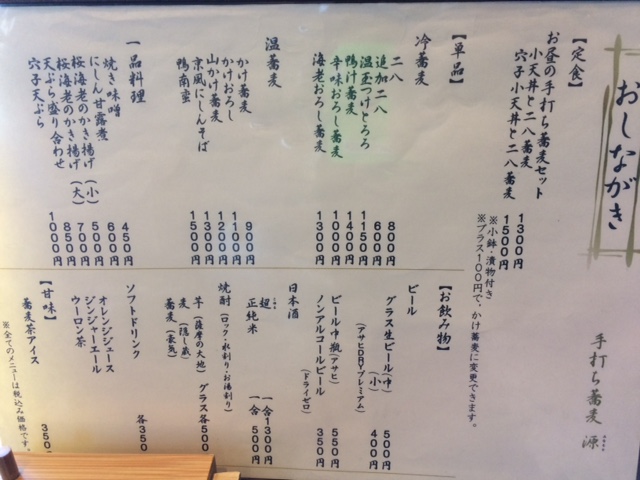 おしながき
手打ち蕎麦 源
【定食】
お昼の手打ち蕎麦セット
小天丼と二八蕎麦 1300円
穴子小天丼と二八蕎麦 1500円
※小鉢・漬物付き
※プラス100円で、かけ蕎麦に変更できます。
【単品】
冷蕎麦
二八 800円
追加二八 600円
温玉つけとろろ 1150円
鴨汁蕎麦 1400円
辛味おろし蕎麦 1000円
海老おろし蕎麦 1300円
温蕎麦
かけ蕎麦 900円
かけおろし 1100円
山かけ蕎麦 1200円
京風にしんそば 1300円
鴨南蛮 1500円
一品料理
焼き味噌 450円
にしん甘露煮 600円
桜海老のかき揚げ(小) 500円
桜海老のかき揚げ(大) 700円
天ぷら盛り合わせ 850円
穴子天ぷら 1000円
【お飲み物】
ビール
グラス生ビール(中) 500円
(小) 400円
(アサヒDRYプレミアム)
ビール中瓶(アサヒ) 550円
ノンアルコールビール 350円
(ドライゼロ)
日本酒
正純米 一合 1300円
超 一合 500円
焼酎(ロック・水割り・お湯割り)
芋(薩摩の大地) グラス各500
麦(隠し蔵)
蕎麦
ソフトドリンク 各350
オレンジジュース
ジンジャーエール
ウーロン茶
【甘味】
蕎麦茶アイス 350
※全てのメニューは税込み価格です。